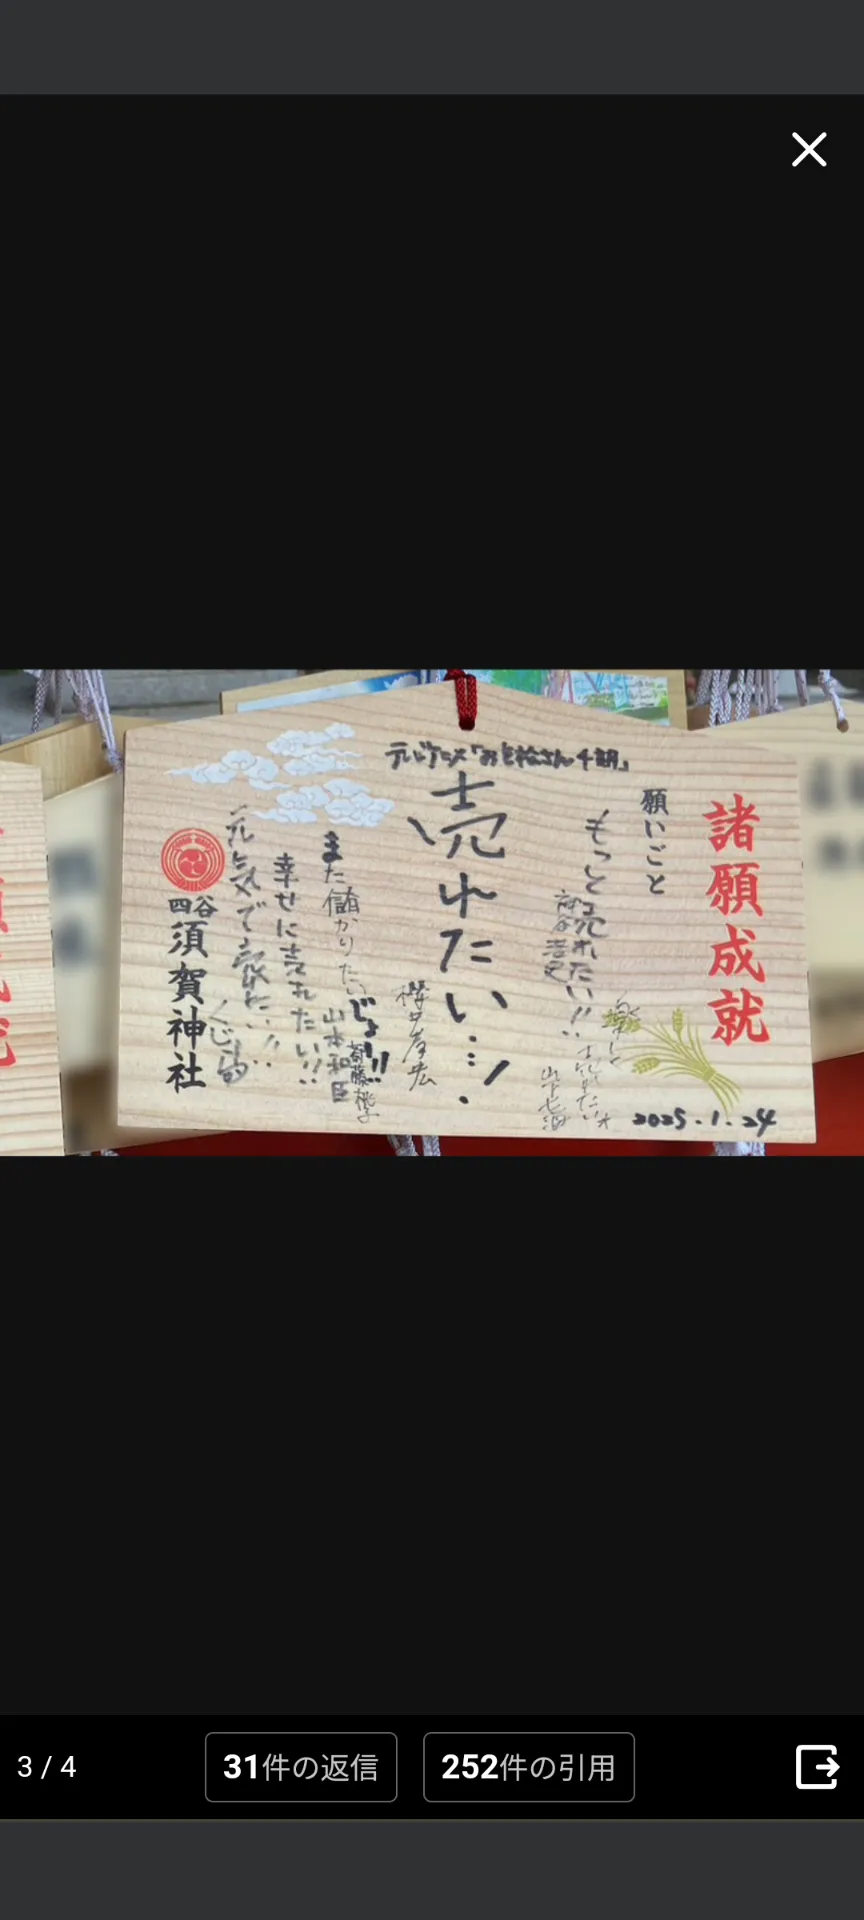 テレビアニメ「お星拾さん4期」
諸願成就
願いごと
もっと売れたい!!
神谷浩史
楽しく売れたい
山下七海
売れたい…!
櫻井孝宏
じょ!!!
斎藤桃子
また儲かりたい
山本和臣
幸せに売れたい!!
元気で
くじら
四谷
須賀神社
2025.1.24
3 / 4
31件の返信
252件の引用